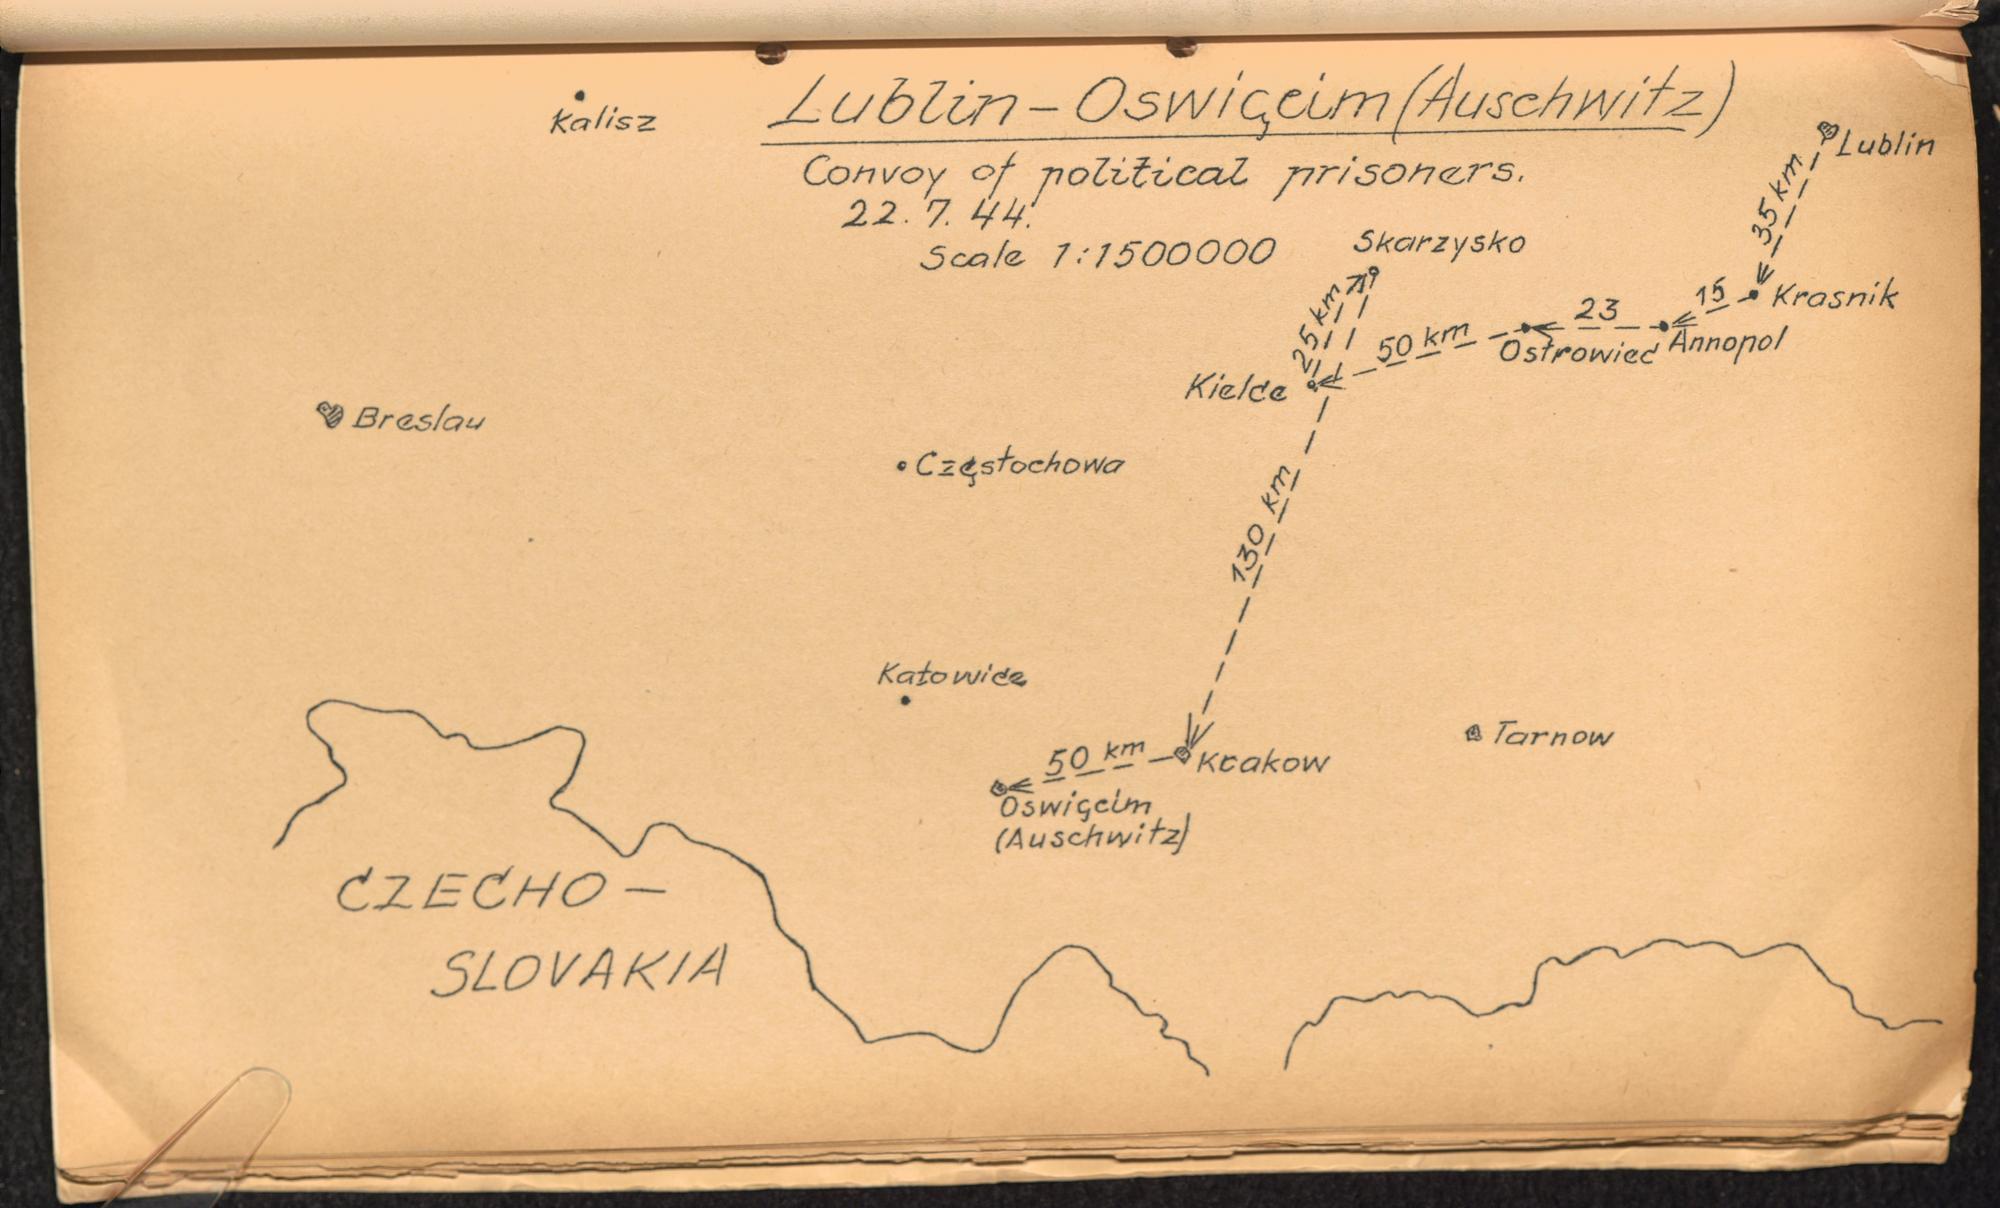 Kalisz
Lublin – Oswięcim (Auschwitz)
Convoy of political prisoners.
22. 7. 44.
Scale 1:1500000
Lublin
35 km
Skarzysko
Krasnik
15
23
Annopol
Ostrowiec
50 km
25 km
Kielce
Breslau
Częstochowa
130 km
Katowice
Tarnow
Krakow
50 km
Oswięcim
(Auschwitz)
CZECHO –
SLOVAKIA